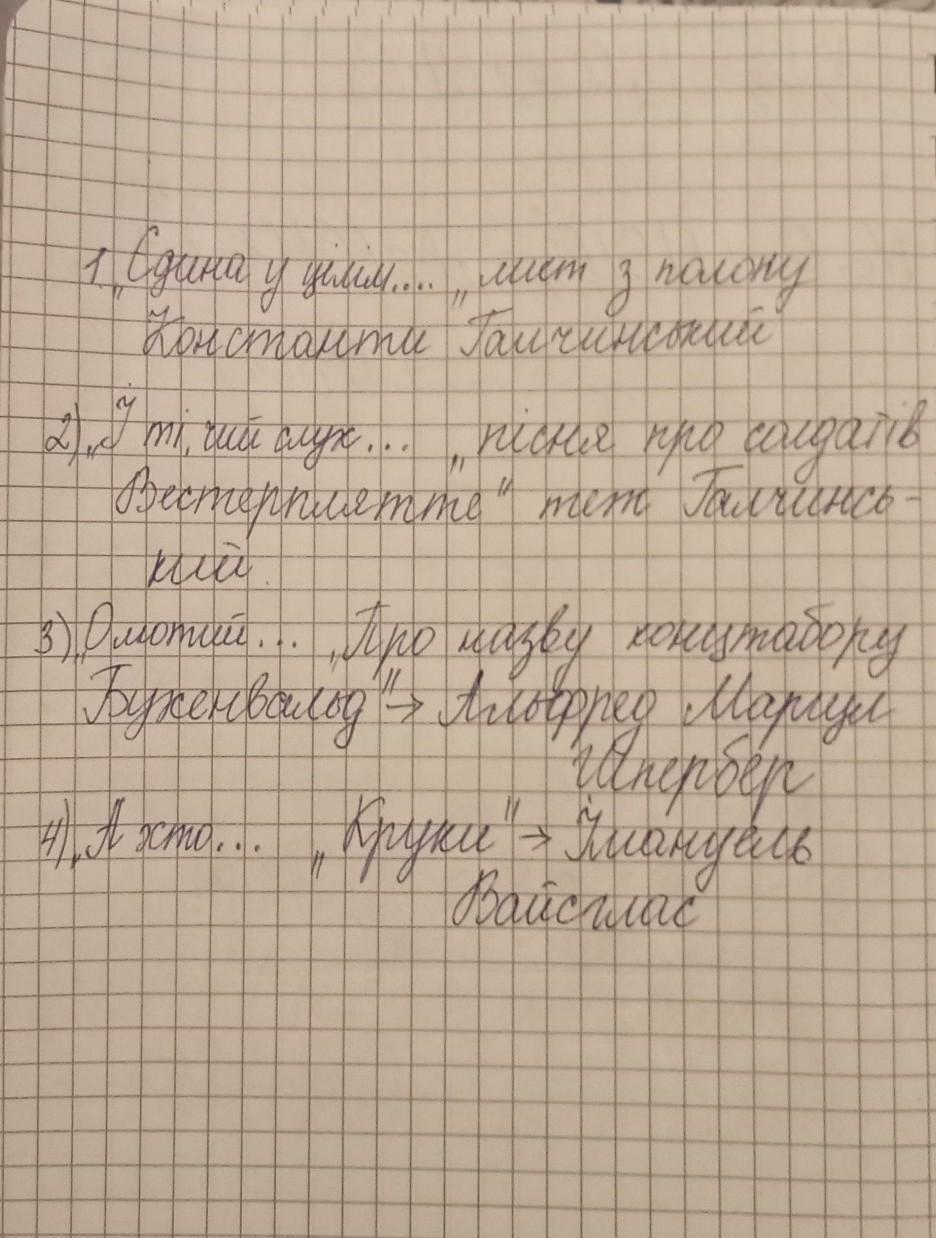 1 „Єдина у цілім.... „лист з полону
Константи Галчинський
2) „Й ті, чий слух... „пісня про солдатів
Вестерплятте" теж Галчинсь-
кий.
3) „Омотий... „Про назву концтабору
Бухенвальд" → Альфред Маргул
Шпербер
4) „А хто... „Круки" → Їмануель
Вайсглас